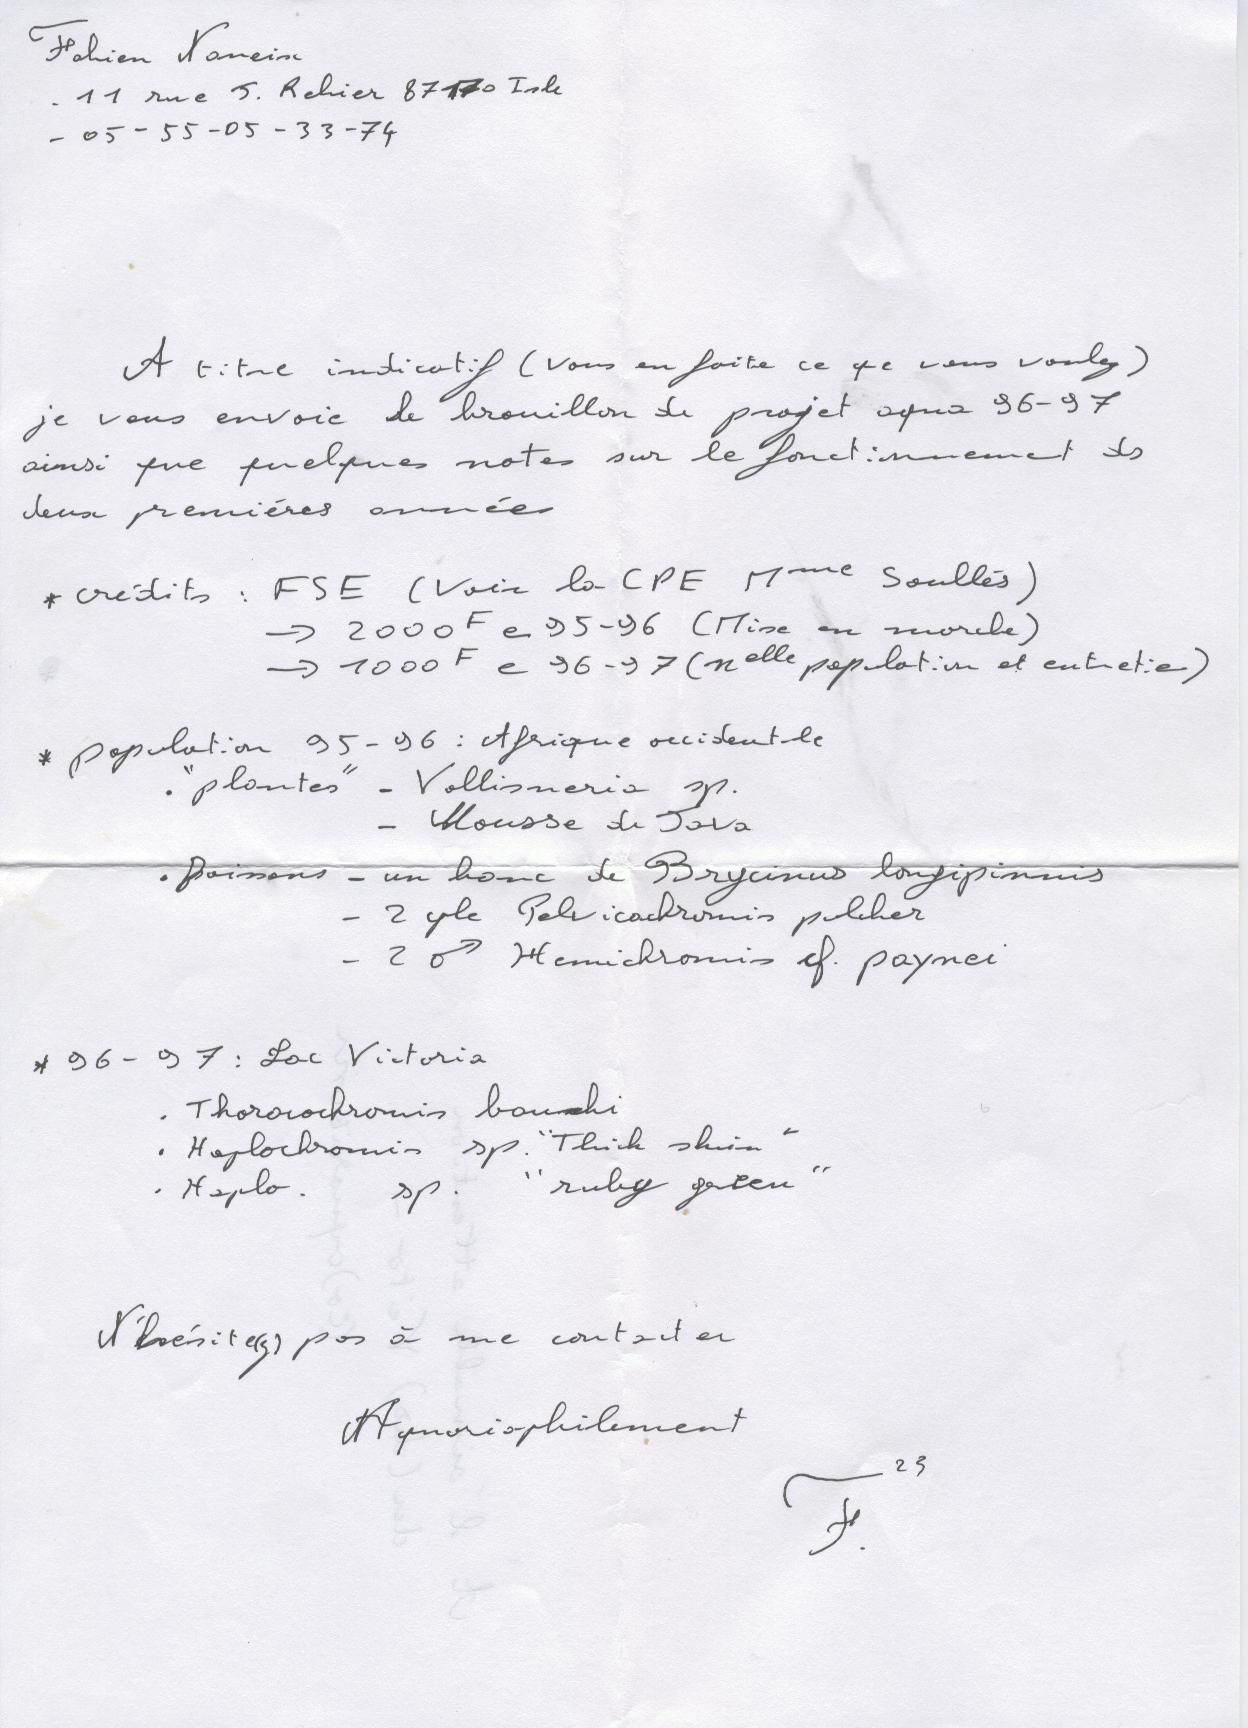 Fabien Naneix
. 11 rue J. Rebier 87170 Isle
- 05-55-05-33-74
A titre indicatif (vous en faite ce que vous voulez)
je vous envoie le brouillon du projet aqua 96-97
ainsi que quelques notes sur le fonctionnement ds
deux premiéres années
* crédits : FSE (Voir la CPE Mme Soullés)
→ 2000F e 95-96 (Mise en marche)
→ 1000F e 96-97 (nelle population et entretie)
* population 95-96 : Afrique occidentale
. "plantes" - Vallisneria sp.
- Mousse de Java
. Poissons - un banc de Brycinus longipinnis
- 2 cple Pelvicachromis pulcher
- 2 ♂ Hemichromis cf. paynei
* 96-97 : Lac Victoria
. Thoracochromis
. Haplochromis sp. "Thick skin"
. Haplo. sp. "ruby green"
N'hésite(z) pas à me contacter
Aquariophilement
F.